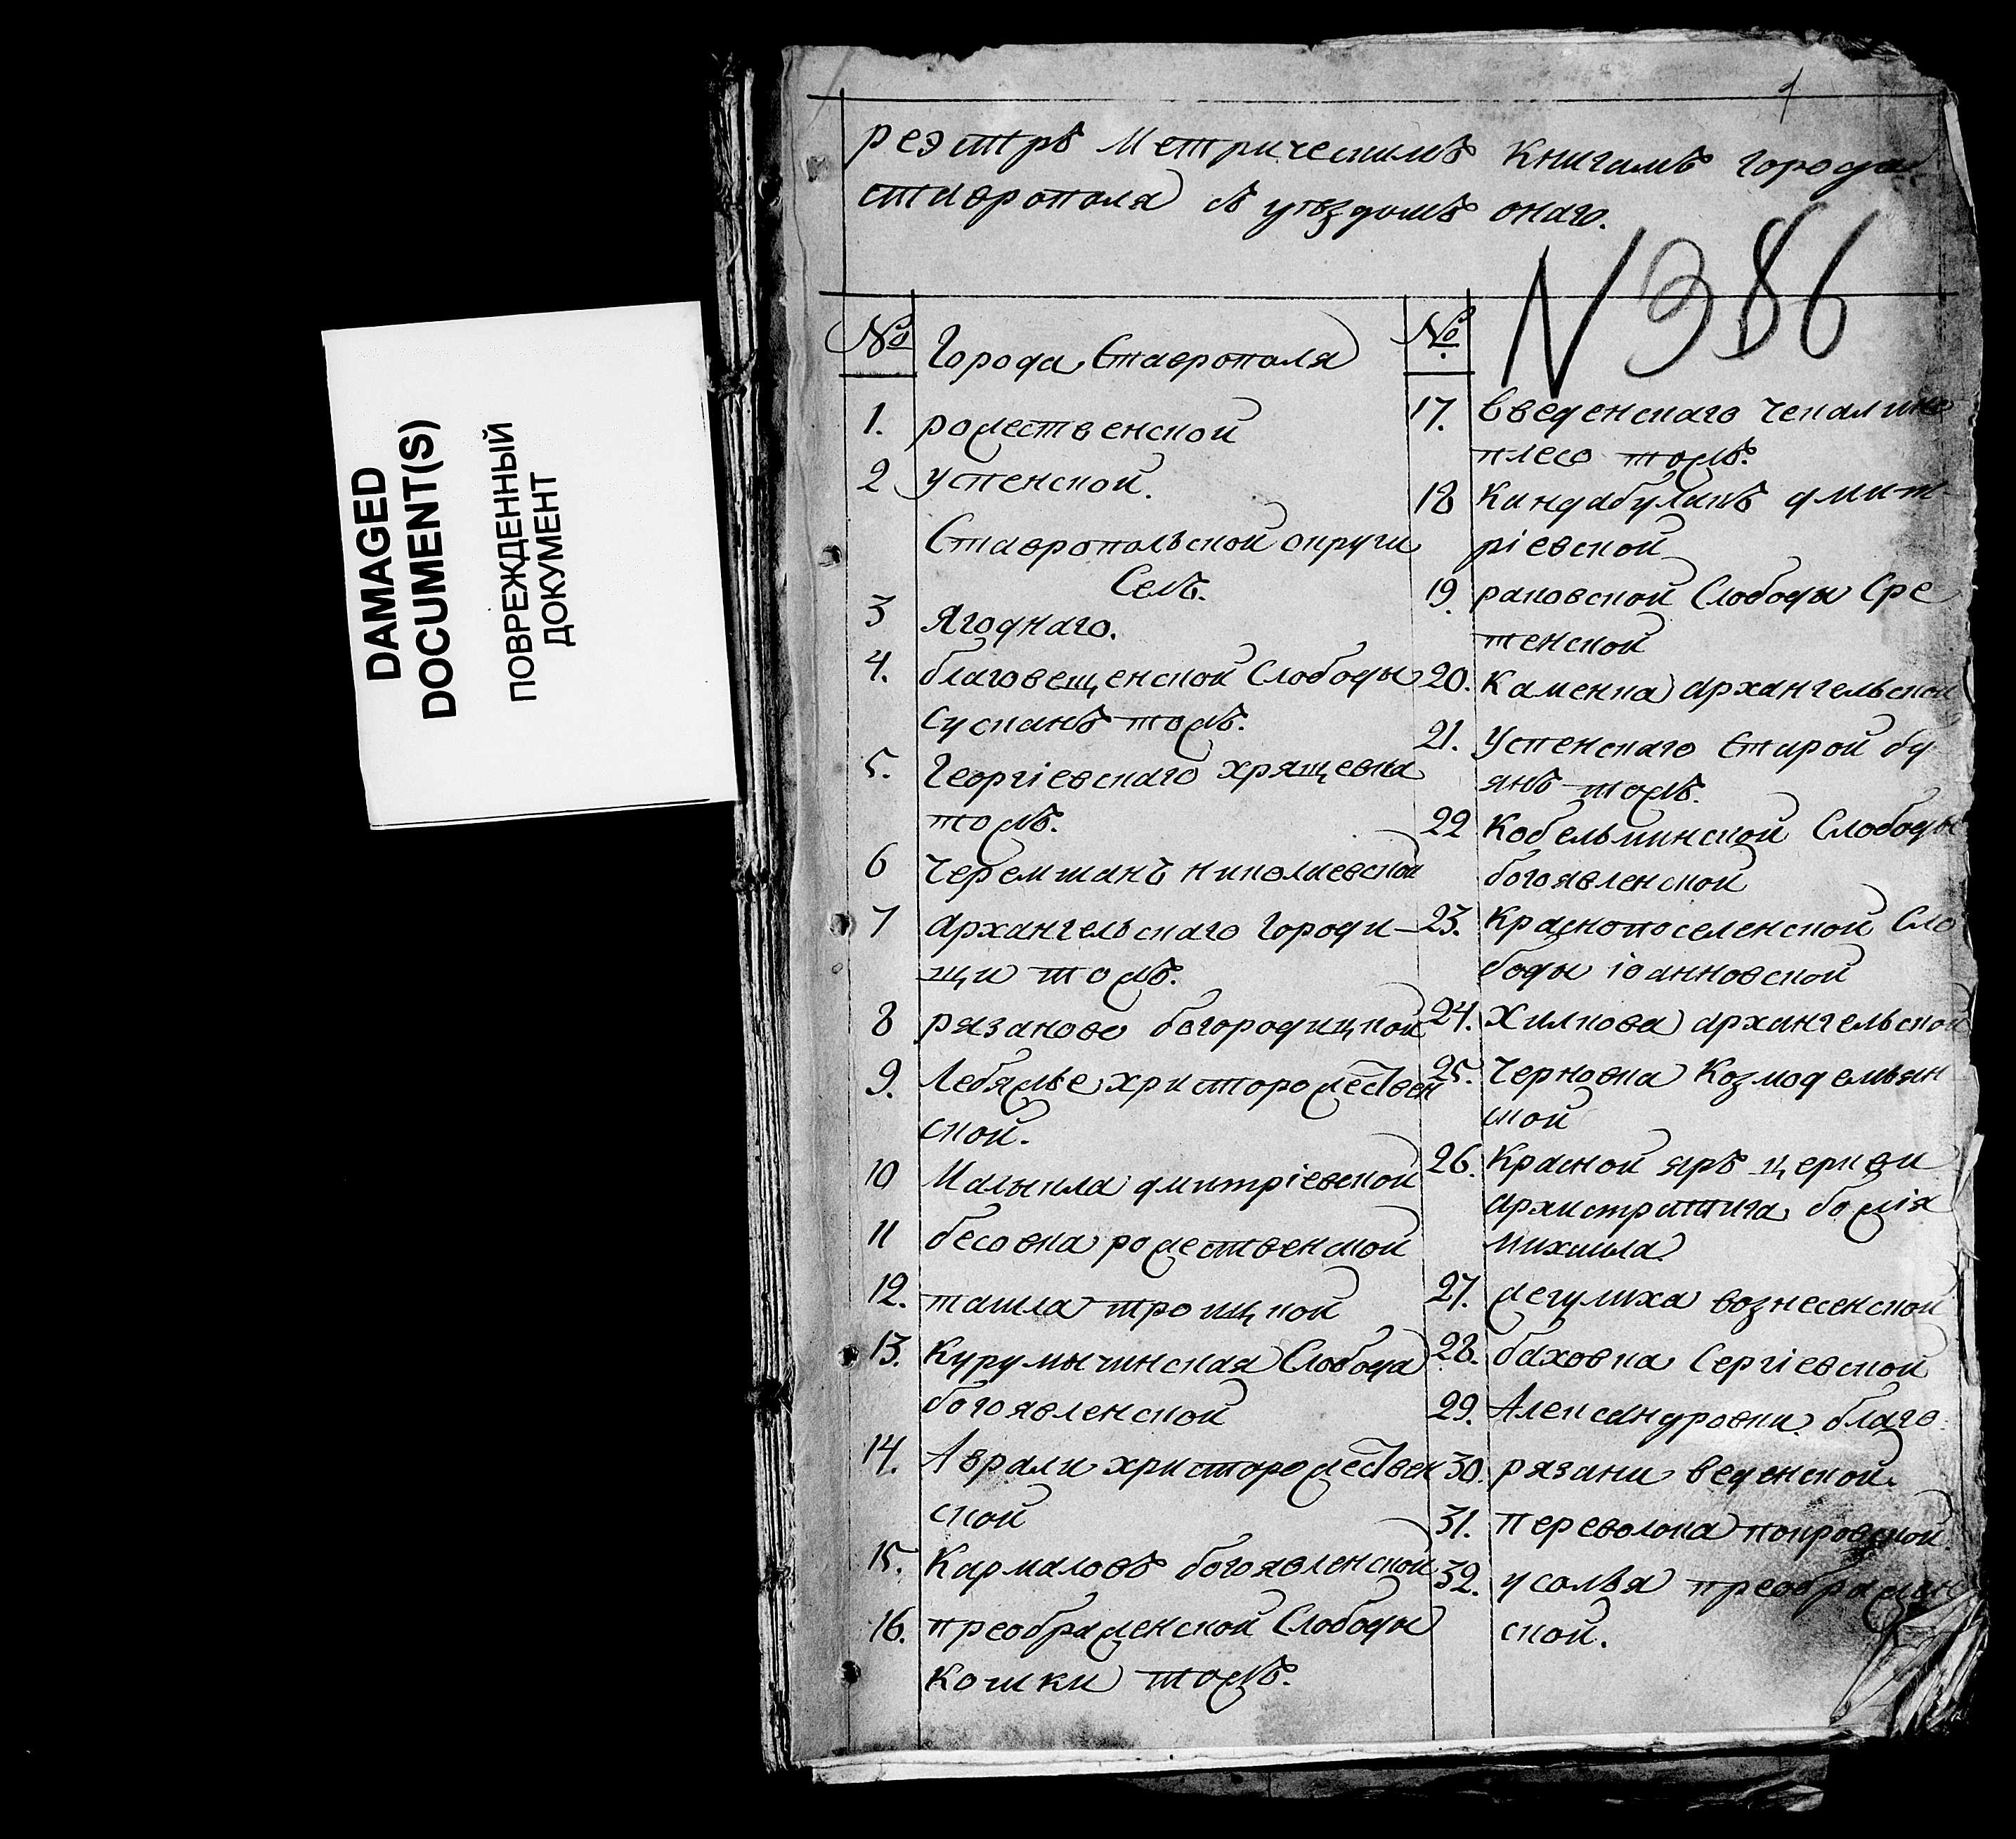 DAMAGED
DOCUMENT(S)
ПОВРЕЖДЕННЫЙ
ДОКУМЕНТ
1
реэстръ Метрическимъ Книгамъ города
ставрополя съ уѣздомъ онаго.
N 386
№ Города Ставрополя
1. рожественской
2 успенской.
Ставропольской округи
Селъ.
3 Ягоднаго.
4. благовещенской Слободы
Сусканъ тожъ.
5. Георгіевскаго хрящевка
тожъ.
6 Черемшанъ николаевской
7 архангельскаго Городи-
щи тожъ.
8 рязаново богородицкой
9. Лебяжье христорожествен
ской.
10 Малыкла дмитріевской
11 бесовка рожественской
12. ташла троицкой
13. Курумычинская Слобода
богоявленской
14. Аврали христорожествен
ской
15. Кармаловъ богоявленской
16. преображенской Слободы
Кошки тожъ.
№
17. введенскаго Чекалино
плесо тожъ.
18 Кандабулакъ дмит-
ріевской
19. раковской Слободы Сре
тенской
20. Каменка архангельской
21. Успенскаго Старой бу
янъ тожъ.
22 Кобельминской Слободы
богоявленской
23. Краснопоселенской Сло
боды іоанновской
24. Хилкова архангельской
25. Черновка Козмодемьян
ской
26. Красной яръ церкви
архистратига божія
михаила
27. жегулиха вознесенской
28. баховка Сергіевской
29. Александровки благо
30. рязани веденской.
31. переволока покровской
32. усолья преображен
ской.